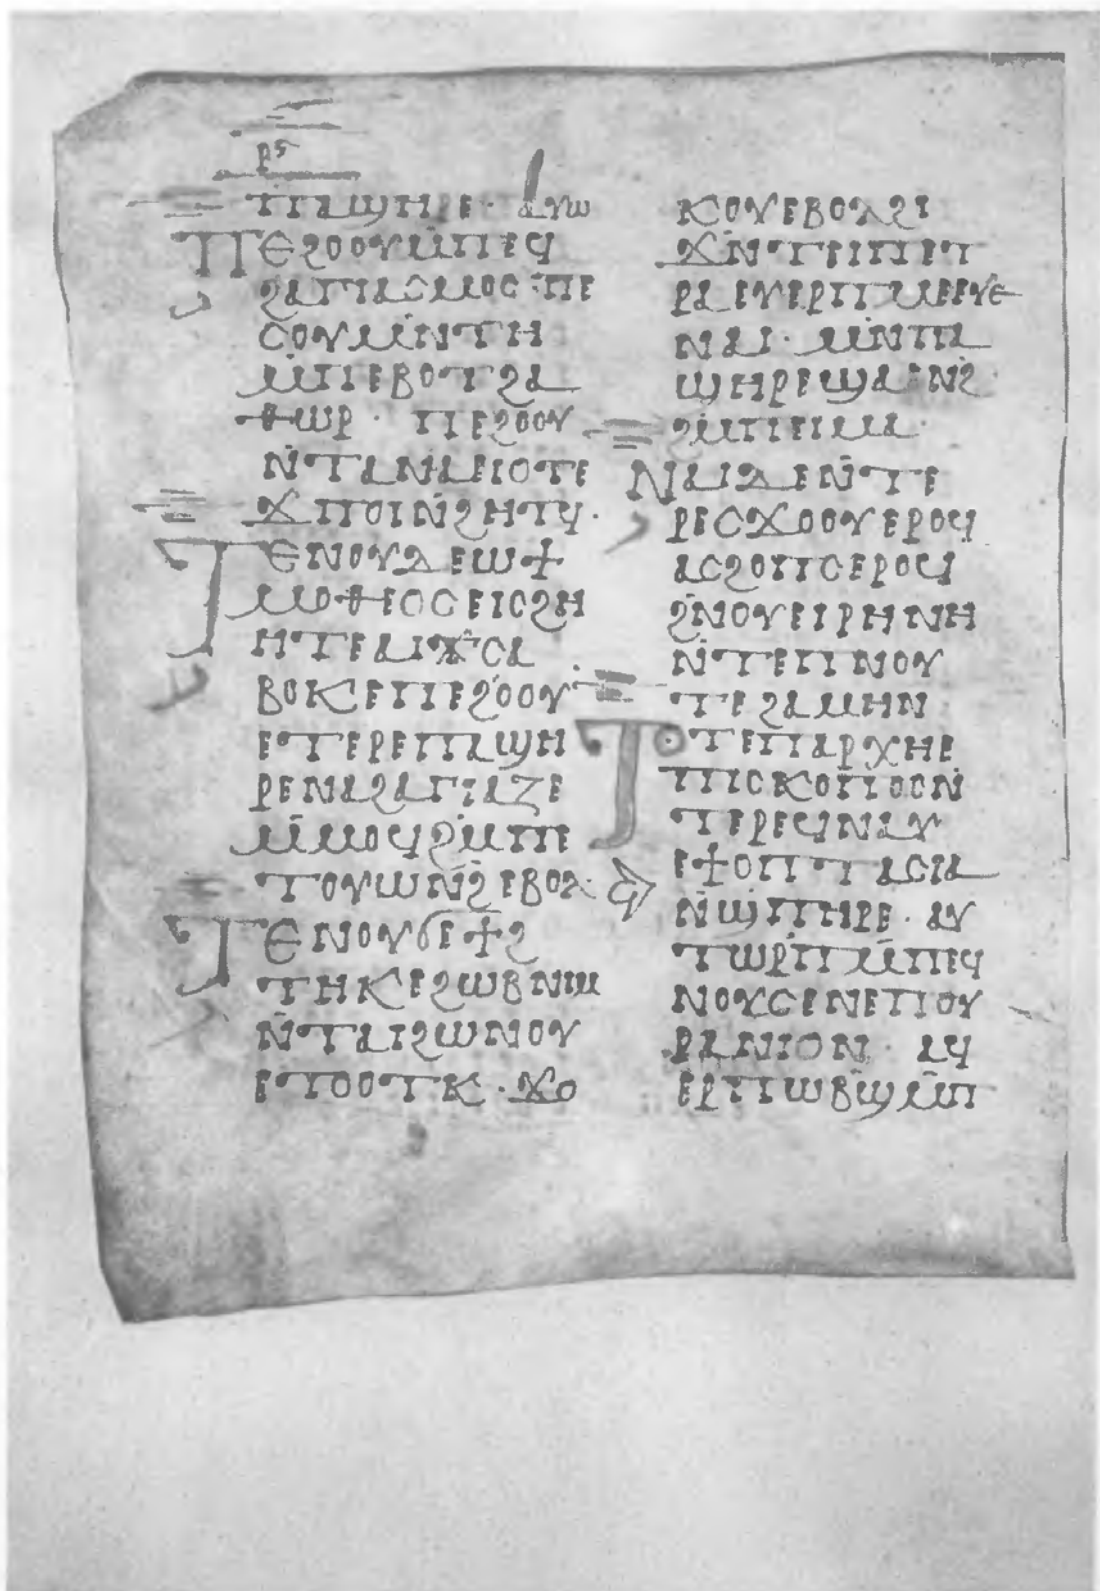 ⲣⲋ
ⲡⲁϣⲏⲣⲉ· ⲁⲩⲱ
ⲡⲉϩⲟⲟⲩⲙ̄ⲡⲉϥ
ϩⲁⲅⲓⲁⲥⲙⲟⲥ·ⲡⲉ
ⲥⲟⲩⲙⲛ̄ⲧⲏ
ⲙ̄ⲡⲉⲃⲟⲧϩⲁ
ⲑⲱⲣ· ⲡⲉϩⲟⲟⲩ
ⲛ̄ⲧⲁⲛⲁⲉⲓⲟⲧⲉ
ϫⲡⲟⲓⲛ̄ϩⲏⲧϥ·
ⲧⲉⲛⲟⲩⲇⲉⲱϯ
ⲙⲟⲑⲉⲟⲥⲉⲓⲥϩⲏ
ⲏⲧⲉⲁⲓϫⲥⲁ
ⲃⲟⲕⲉⲡⲉϩⲟⲟⲩ
ⲉⲧⲉⲣⲉⲡⲁϣⲏ
ⲣⲉⲛⲁϩⲁⲅⲓⲁⲍⲉ
ⲙ̄ⲙⲟϥϩⲙ̄ⲡⲉ
ⲧⲟⲩⲱⲛϩ̄ⲉⲃⲟⲗ·
ⲧⲉⲛⲟⲩϭⲉϯϩ
ⲧⲏⲕⲉϩⲱⲃⲛⲓⲙ
ⲛ̄ⲧⲁⲓϩⲱⲛⲟⲩ
ⲉⲧⲟⲟⲧⲕ·ϫⲟ
ⲕⲟⲩⲉⲃⲟⲗϩⲓ
ϫⲛ̄ⲧⲉⲓⲡⲉⲧ
ⲣⲁⲉⲩⲉⲣⲡⲙⲉⲉⲩⲉ
ⲛⲁⲓ· ⲙⲛ̄ⲡⲁ
ϣⲏⲣⲉϣⲁⲉⲛϩ̄
ϩⲙ̄ⲡⲉⲓⲙⲁ·
ⲛⲁⲓⲇⲉⲛ̄ⲧⲉ
ⲣⲉⲥϫⲟⲟⲩⲉⲣⲟϥ
ⲁⲥϩⲟⲡⲥⲉⲣⲟϥ
ϩⲛ̄ⲟⲩⲉⲓⲣⲏⲛⲏ
ⲛ̄ⲧⲉⲡⲛⲟⲩ
ⲧⲉϩⲁⲙⲏⲛ
ⲧⲟⲧⲉⲡⲁⲣⲭⲏⲉ
ⲡⲓⲥⲕⲟⲡⲟⲥⲛ̄
ⲧⲉⲣⲉϥⲛⲁⲩ
ⲉϯⲟⲡⲧⲁⲥⲓⲁ
ⲛ̄ϣⲡⲏⲣⲉ· ⲁⲩ
ⲧⲱⲣⲡ̄ⲙ̄ⲡⲉϥ
ⲛⲟⲩⲥⲉⲛⲉⲡⲟⲩ
ⲣⲁⲛⲓⲟⲛ· ⲁϥ
ⲉⲣⲡⲱⲃϣ̄ⲙ̄ⲡ